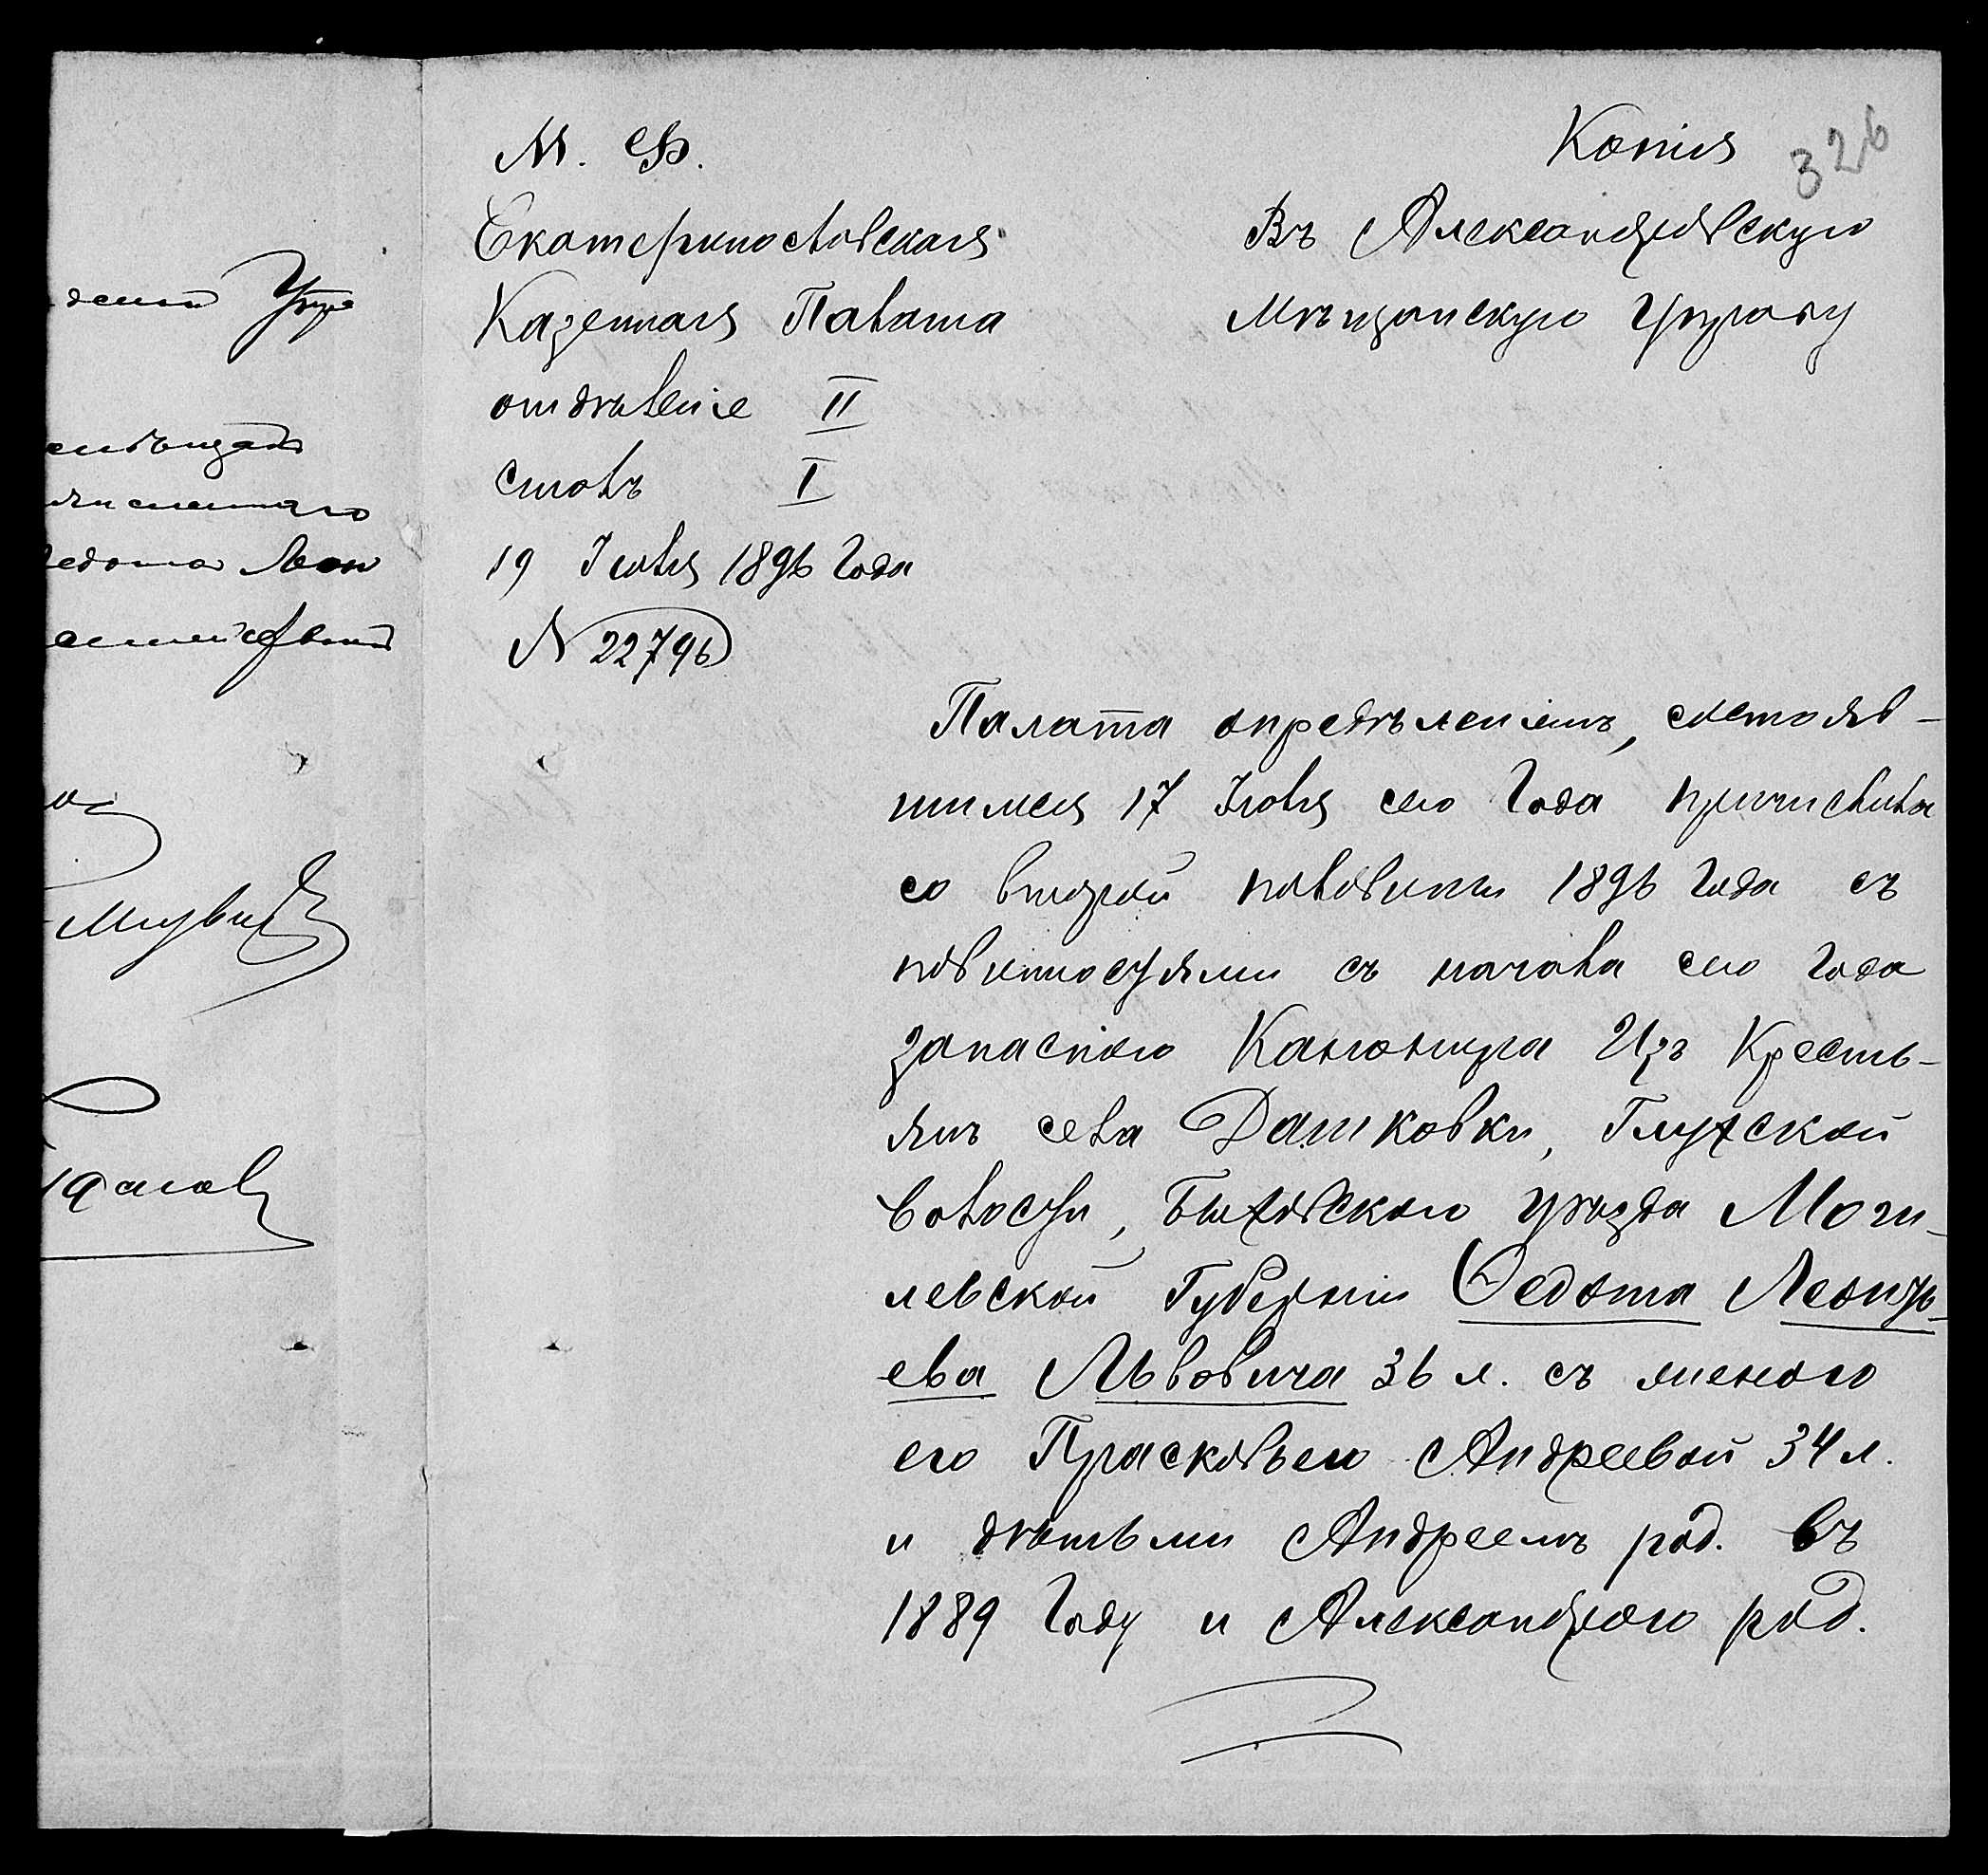 дентъ Упр
мѣщан
численнаго
Ѳедота Леон
семействомъ
М. Ф.
Екатеринославская
Казенная Палата
отдѣленіе II
столъ I
19 Іюля 1896 года
N 22796
Копія
326
Въ Александровскую
Мѣщанскую Управу
Палата опредѣленіемъ, состояв-
шимся 17 Іюля сего года причислила
со второй половины 1896 года съ
повинностями съ начала сего года
запаснаго Канонира Изъ Кресть-
янъ села Дашковки, Глухской
волости, Быховскаго уѣзда Моги-
левской Губерніи Ѳедота Леонть-
ева Львовича 36 л. съ женою
его Прасковьею Андреевой 34 л.
и дѣтьми Андреемъ род. въ
1889 году и Александрою род.